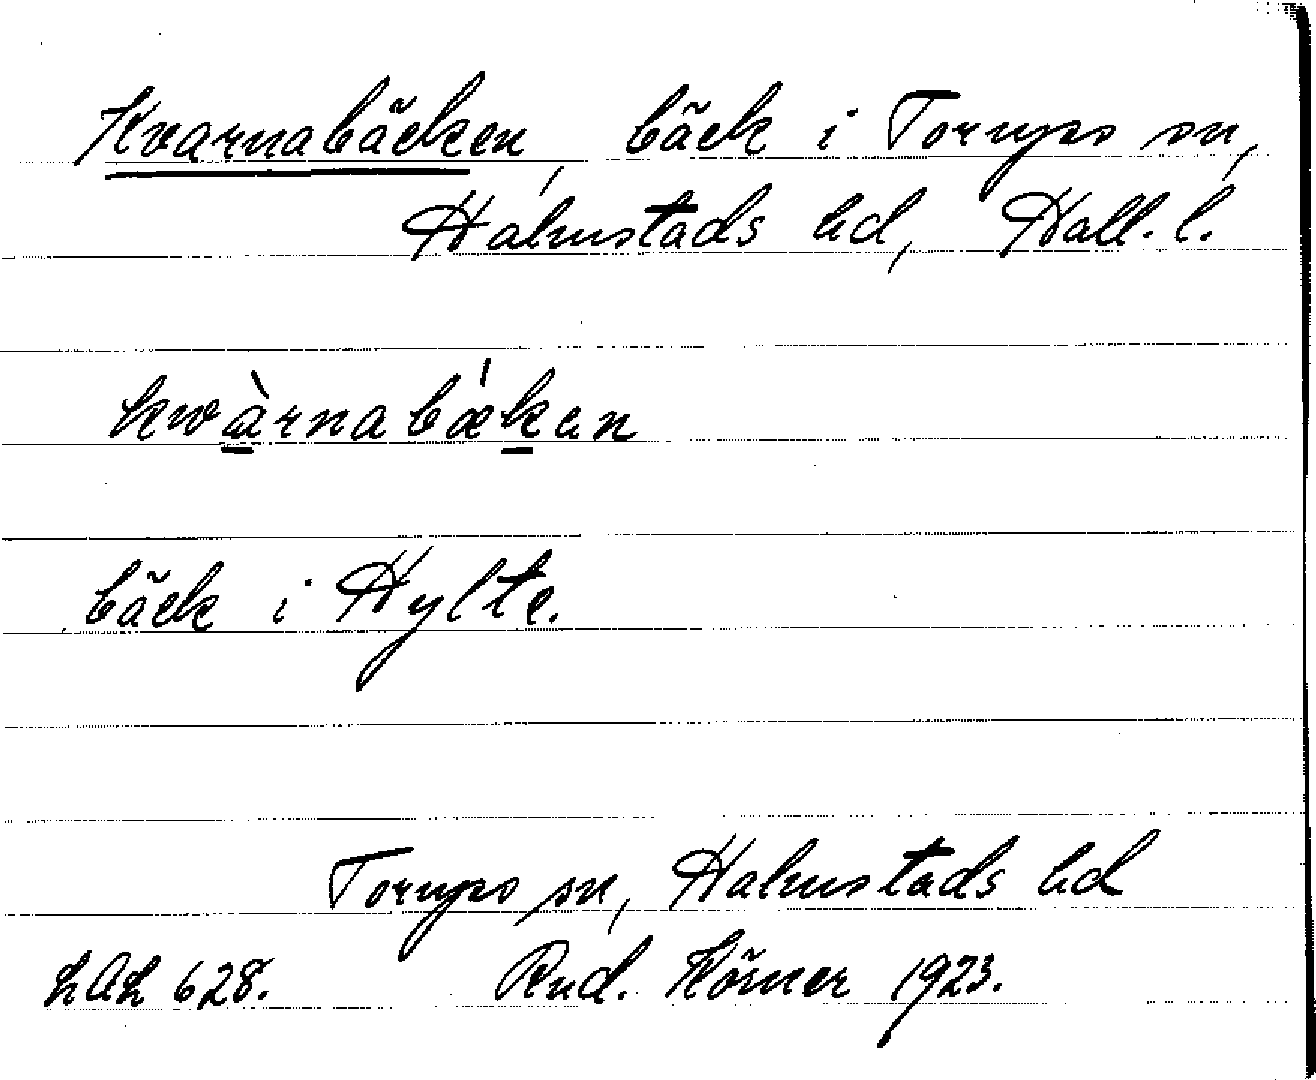 Kvarnabäcken, bäck i Torups sn,
Halmstads hd, Hall. l.
kwàrnabæken
bäck i Hylte.
Torups sn, Halmstads hd
LAL 628. Rud. Körner 1923.